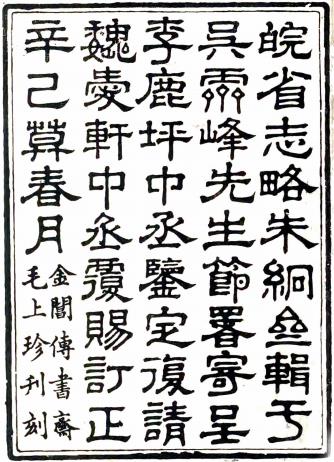 皖省志略朱絅亝輯于
吳霝峰先生節署寄呈
李鹿坪中丞鑒定復請
魏愛軒中丞覆賜訂正
辛巳莫春月
金閶傳書齋
毛上珍刊刻